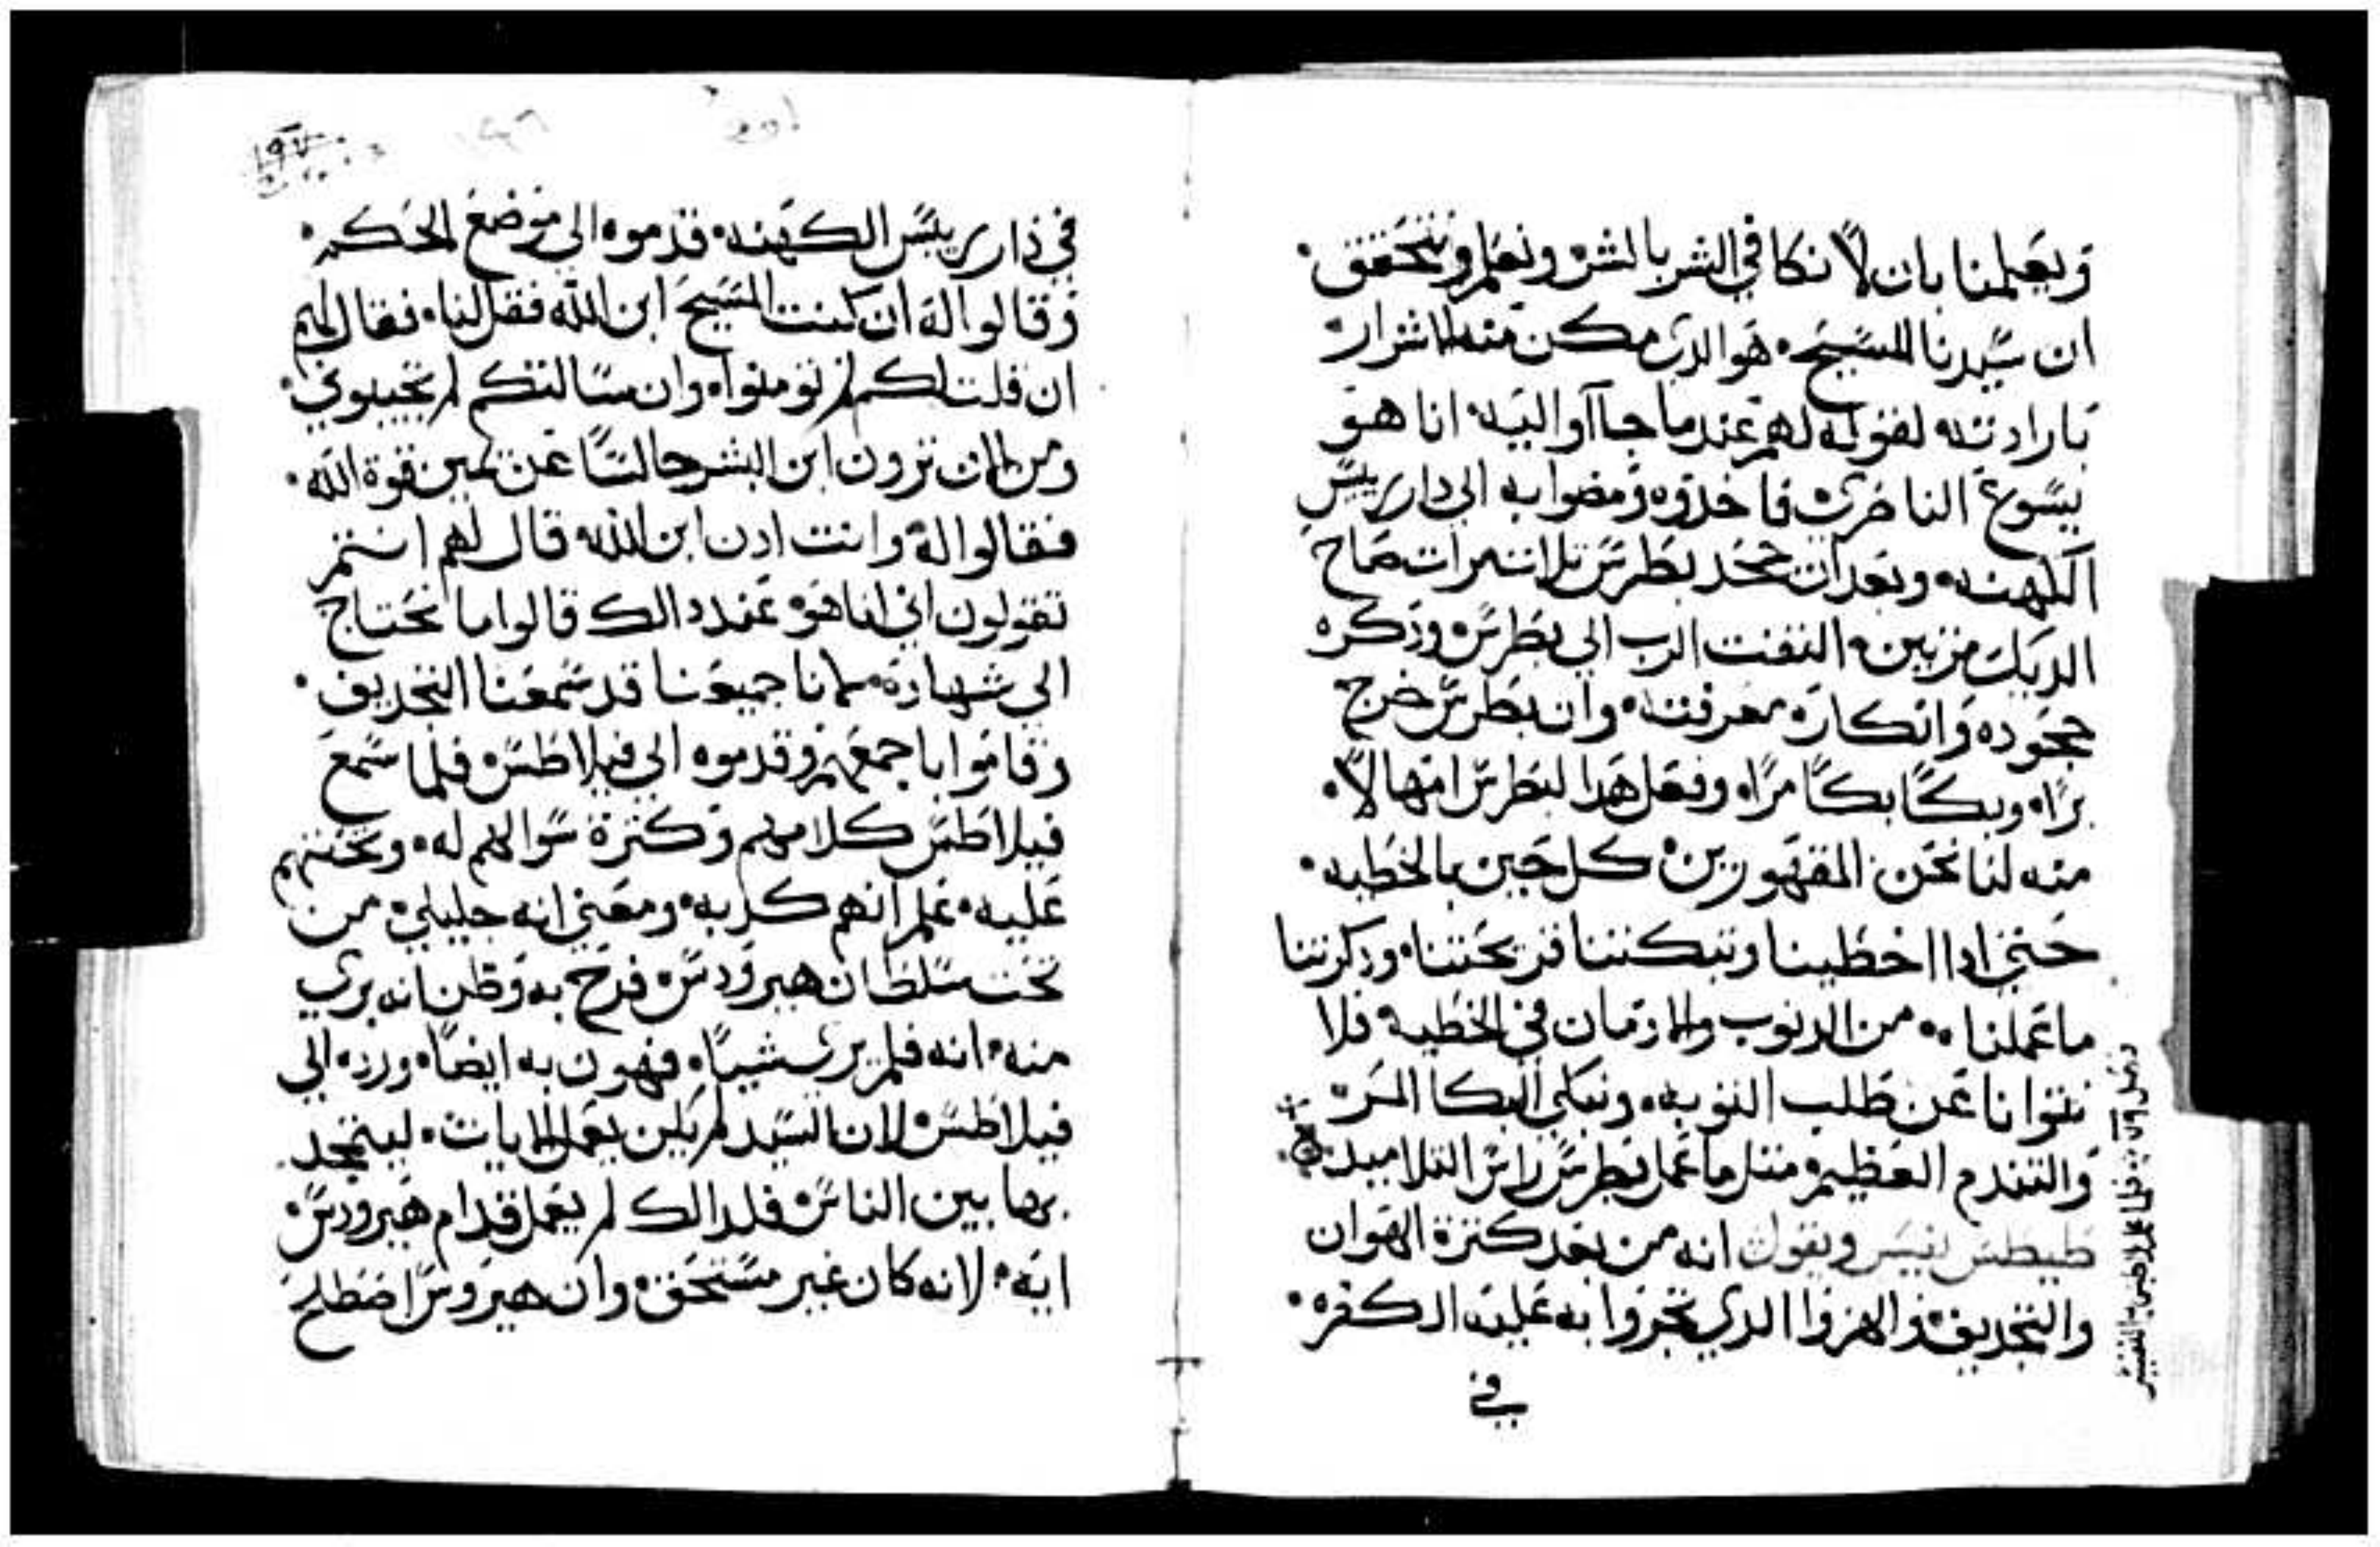 ويعلمنا بان لا نكافي الشر بالشر ونعلم ونتحقق
ان سيدنا المسيح هو الدي مكن منه الاشرار
بارادته لقوله لهم عندما جاآوا اليه انا هو
يسوع الناضري فاخدوه ومضوا به الي دار رييس
الكهنه وبعد ان جحد بطرس تلات مرات صاح
الديك مرتين التفت الرب الي بطرس ودكره
جحوده وانكاره معرفته وان بطرس خرج
برا وبكا بكا مرا وفعل هدا لبطرس امهالا
منه لنا نحن المقهورين كل حين بالخطيه
حتي ادا اخطينا وتبكتنا قريحتنا ودكرتنا
ما عملناه من الدنوب والادمان في الخطيه فلا
نتوانا عن طلب التوبه ونبكي البكا المر
والتندم العظيم متل ما عمل بطرس راس التلاميد
طيطس يفسر ويقول انه من بعد كترة الهوان
والتجديف والهزوا الدي تجروا به عليه الكفره
في
في دار رييس الكهنه قدموه الي موضع الحكم
وقالوا له ان كنت المسيح ابن الله فقل لنا فقال لهم
ان قلت لكم لم تومنوا وان سالتكم لم تجيبوني
ومن الان ترون ابن البشر جالسا عن يمين قوة الله
فقالوا له وانت ادن ابن الله قال لهم انتم
تقولون اني انا هو عند دالك قالوا ما نحتاج
الي شهادة لاننا جميعنا قد سمعنا التجديف
وقاموا باجمعهم وقدموه الي فيلاطس فلما سمع
فيلاطس كلامهم وكترة سوالهم له وتعنتهم
عليه علم انهم كدبه ومعني انه جليلي من
تحت سلطان هيرودس فرح به وظن انه يري
منه انه فلم يري شييا فهون به ايضا ورده الي
فيلاطس لان السيد لم يكن يعمل الايات ليتمجد
بها بين الناس فلدالك لم يعمل قدام هيرودس
ايه لانه كان غير مستحق وان هيرودس اصطلح